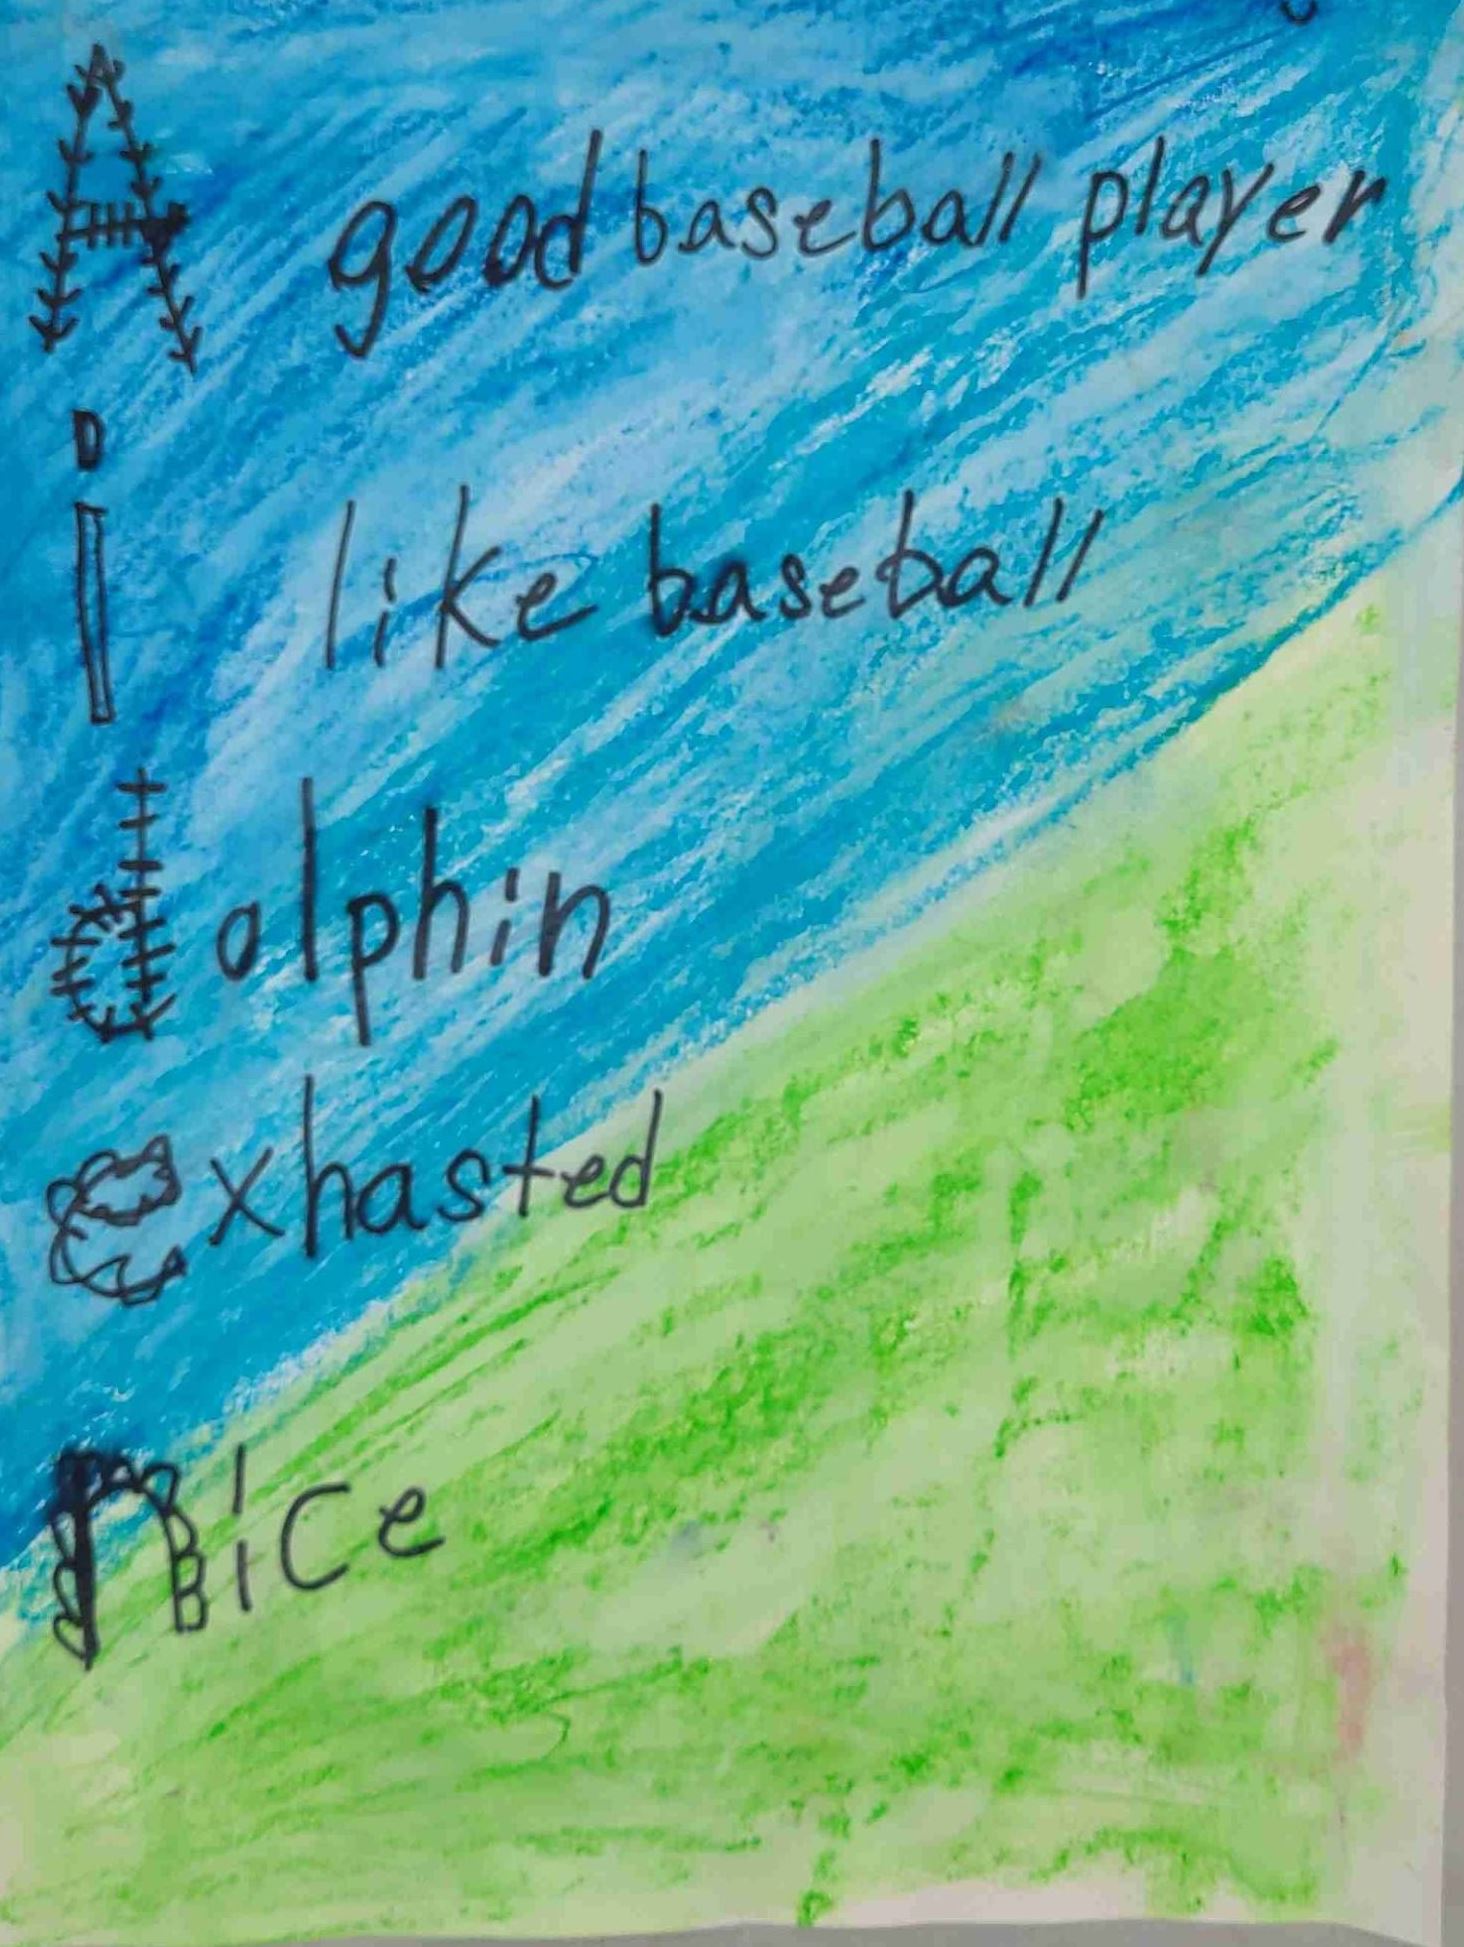 A good baseball player
i like baseball
dolphin
exhasted
nice